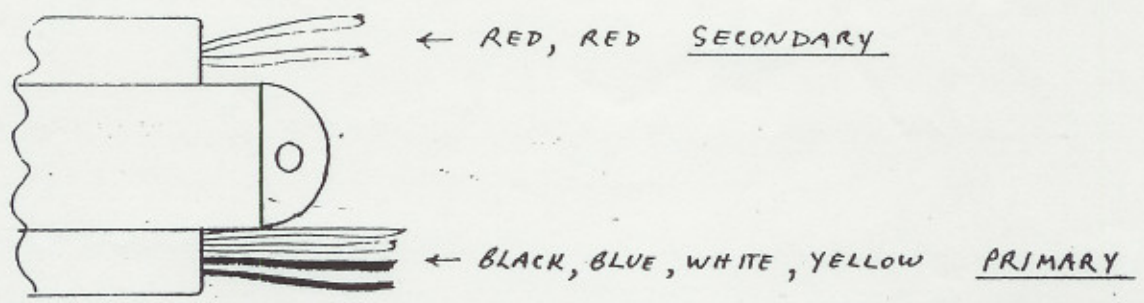 ← RED, RED SECONDARY
← BLACK, BLUE, WHITE, YELLOW PRIMARY